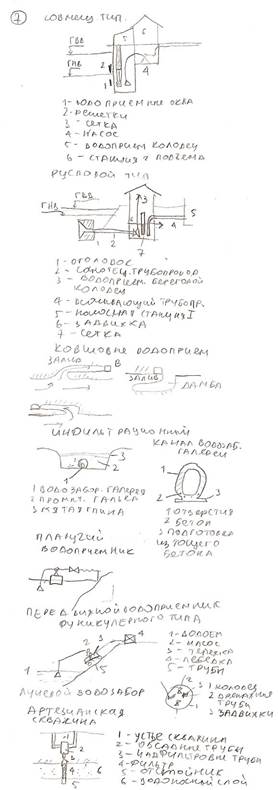 7 СОВМЕЩ ТИП.
ГВВ
ГНВ
5
6
1
2
3
4
1 - ВОДОПРИЕМНИЕ ОКНА
2 - РЕШЕТКИ
3 - СЕТКА
4 - НАСОС
5 - ВОДОПРИЕМ КОЛОДЕЦ
6 - СТАНЦИЯ ПОДЪЕМА
РУСЛОВОЙ ТИП
ГВВ
ГНВ
3
5
4
1
2
6
7
1 - ОГОЛОВОК
2 - САМОТЕЧ. ТРУБОПРОВОД
3 - ВОДОПРИЕМ. БЕРЕГОВОЙ
КОЛОДЕЦ
4 - ВСАСЫВАЮЩИЙ ТРУБОПР.
5 - НАСОСНАЯ СТАНЦИЯ I
6 - ЗАДВИЖКА
7 - СЕТКА
КОВШОВЫЕ ВОДОПРИЕМ
ЗАЛИВ
В
ЗАЛИВ
ДАМБА
ИНФИЛЬТРАЦИОННИЙ
3
2
1
1 ВОДОЗАБОР. ГАЛЕРЕЯ
2 ПРОМИТ. ГАЛЬКА
3 МЯТАЯ ГЛИНА
КАНАЛ ВОДОЗАБ.
ГАЛЕРЕИ
1
2
3
1 ОТВЕРСТИЯ
2 БЕТОН
3 ПОДГОТОВКА
ИЗ ТОЩЕГО
БЕТОНА
ПЛАВУЧИЙ
ВОДОПРИЕМНИК
ПЕРЕДВИЖНОЙ ВОДОПРИЕМНИК
ФУНИКУЛЕРНОГО ТИПА
1
2
3
4
5
1 - ВОДОЕМ
2 - НАСОС
3 - ТЕЛЕЖКА
4 - ЛЕБЕДКА
5 - ТРУБИ
ЛУЧЕВОЙ ВОДОЗАБОР
1 КОЛОДЕЦ
2 ДРЕНАЖНИЯ
ТРУБИ
3 ЗАДВИЖКИ
АРТЕЗИАНСКАЯ
СКВАЖИНА
1
2
3
4
5
6
1 - УСТЬЕ СКВАЖИНА
2 - ОБСАДНИЕ ТРУБИ
3 - НАДФИЛЬТРОВИ ТРУБИ
4 - ФИЛЬТР
5 - ОТСТОЙНИК
6 - ВОДОНОСНИЙ СЛОЙ